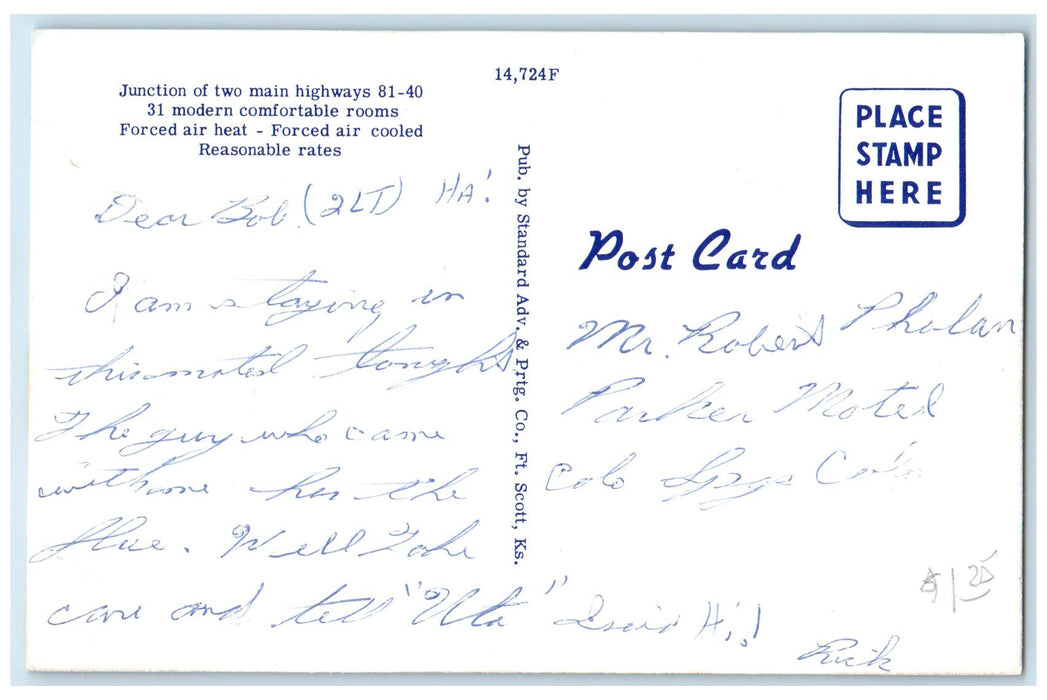 14,724F
Junction of two main highways 81-40
31 modern comfortable rooms
Forced air heat - Forced air cooled
Reasonable rates
PLACE
STAMP
HERE
Post Card
Pub. by Standard Adv. & Prtg. Co., Ft. Scott, Ks.
Dear Bob (2LT) HA!
I am staying in
this motel tonight
The guy who came
with me has the
flue. Well Take
care and tell "Uta" I said Hi!
Rick
Mr. Robert Phelan
Parker Motel
Colo Spgs Colo